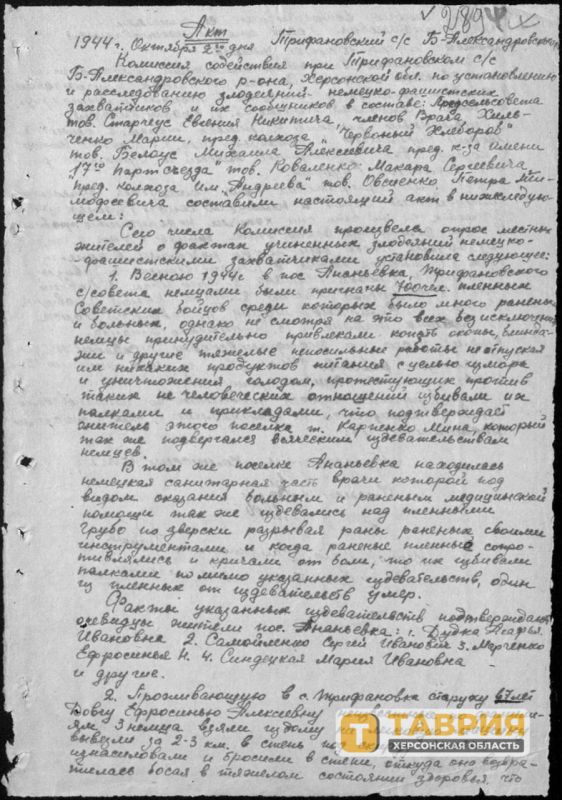 289
Акт
1944 г. Октября 2го дня Трифановский с/с Б-Александровского
Комиссия содействия при Трифановском с/с
Б-Александровского р-она, Херсонской обл. по установлению
и расследованию злодеяний немецко-фашистских
захватчиков и их сообщников в составе: Предсельсовета
тов. Старчеус Евгения Никитича членов Врача Хиль-
ченко Марии, пред. колхоза "Червоный Хлебороб"
тов. Белоус Михаила Алексеевича пред. к-за имени
"17го партсъезда" тов. Коваленко Макара Сергеевича
пред. колхоза им. "Андреева" тов. Овсиенко Петра Ти-
мофеевича составили настоящий акт в нижеследую-
щем:
Сего числа Комиссия произвела опрос местных
жителей о фактах учиненных злодеяний немецко-
-фашистскими захватчиками установила следующее:
1. Весною 1944 г в пос. Ананьевка, Трифановского
с/совета немцами были пригнаны 700 чел. пленных
Советских бойцов среди которых было много ранены
и больных, однако не смотря на это всех без исключения
немцы принудительно привлекали копать окопы, блинда-
жи и другие тяжелые непосильные работы не отпуская
им никаких продуктов питания с целью измора
и уничтожения голодом, протестующих против
таких не человеческих отношений избивали их
палками и прикладами, что подтверждает
житель этого поселка т. Карпенко Мина, который
так же подвергался всяческим издевательствам
немцев.
В том же поселке Ананьевка находилась
немецкая санитарная часть врачи которой под
видом оказания больным и раненым медицинской
помощи так же издевались над пленными
грубо по зверски разрывая раны раненых своими
инструментами и когда раненые пленные сопро-
тивлялись и кричали от боли, то их избивали
палками помимо указанных издевательств, один
из пленных от издевательств умер.
Факты указанных издевательств подтверждают
очевидцы жители пос. Ананьевка: 1. Дудка
Ивановна 2. Самойленко Сергей Иванович 3. Марченко
Ефросинья Н. 4. Синдецкая Мария Ивановна
и другие.
2. Проживающую в с. Трифановка старуху 67 лет
Довгу Ефросинью Алексеевну
ям. 3 немца взяли из дому
вывезли за 2-3 км. в степь
изнасиловали и бросили в степи, откуда она возвра-
щалась босая в тяжелом состоянии здоровья, что
ТАВРИЯ
ХЕРСОНСКАЯ ОБЛАСТЬ